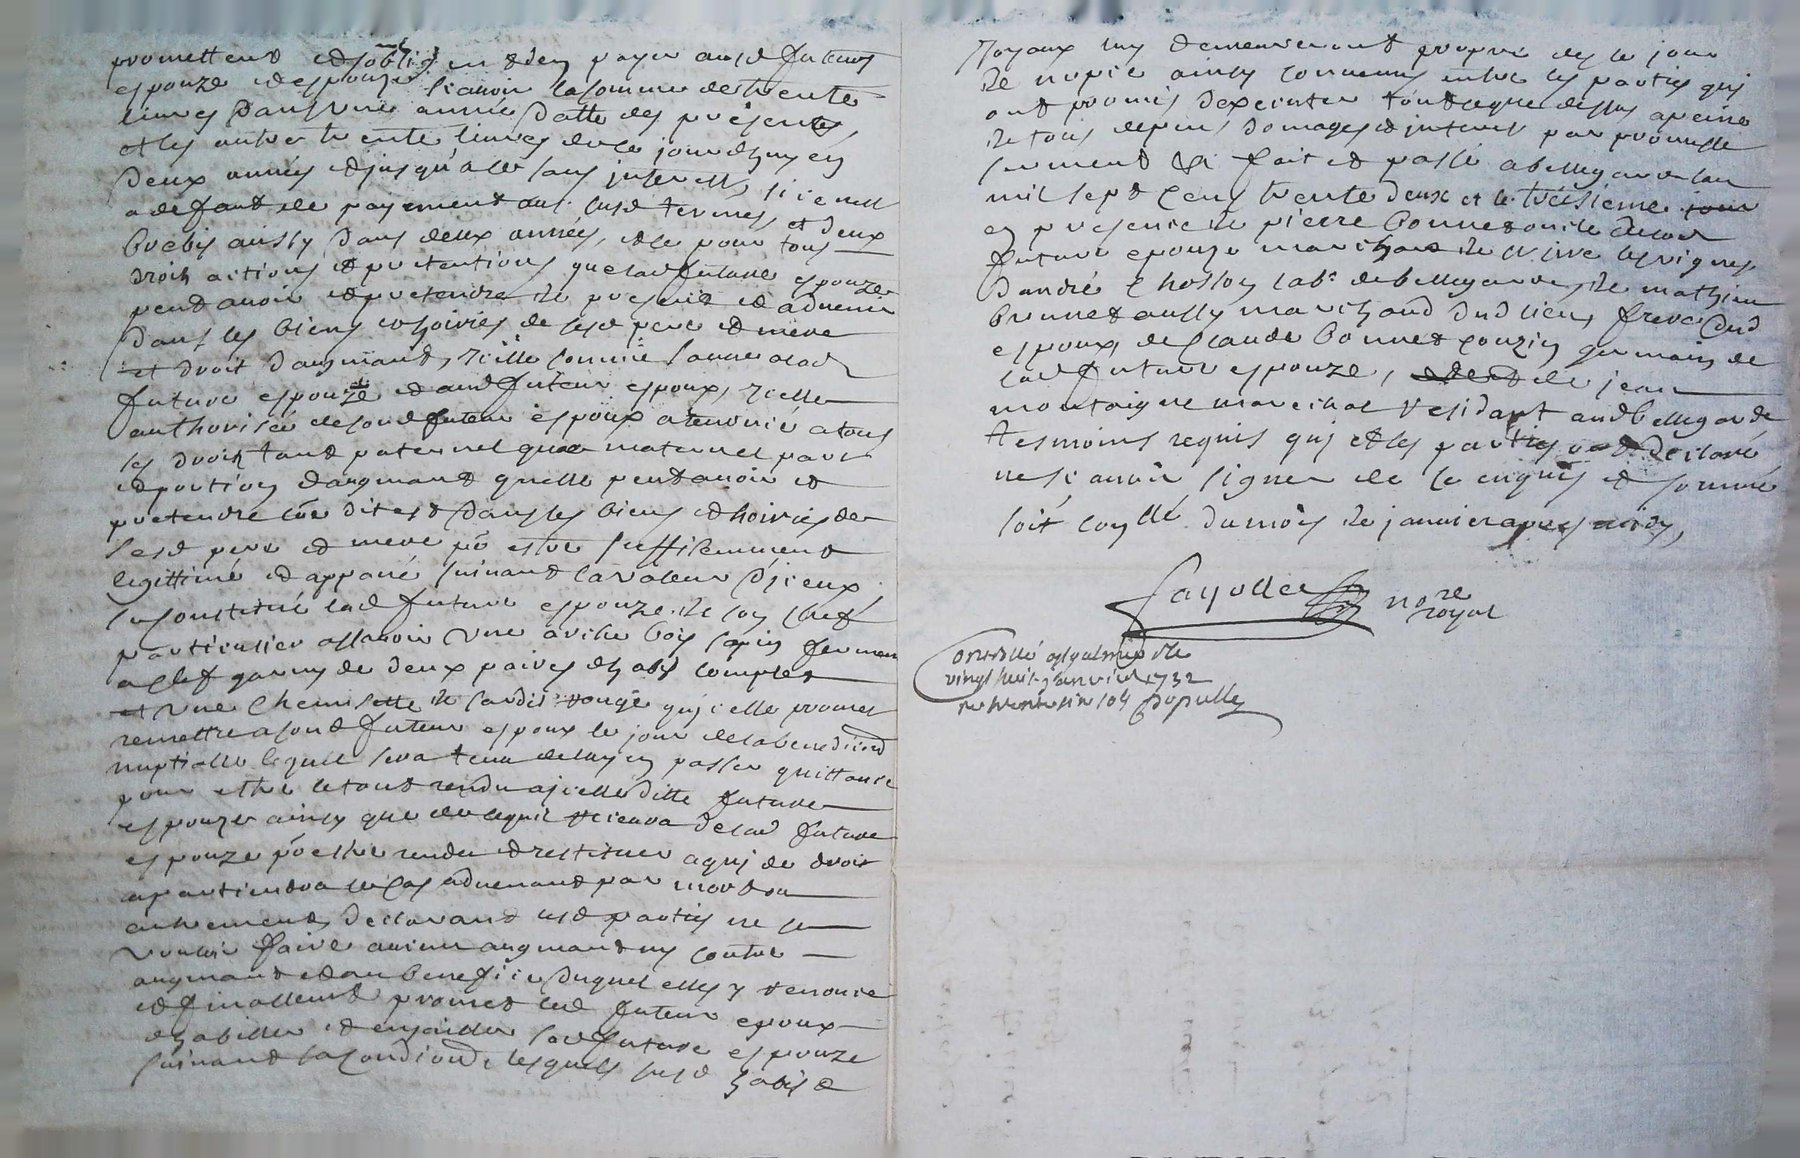 promettent et s'oblig^ent en dien payer ausd futurs
espouze et espouze scavoir la somme de trente
livres dans une année datte des presentes,
et les autres trente livres de ce jourdhuy en
deux années et jusqu'a ce sans interests si ce nest
a defaut de payement aux susd termes, et deux
brebis aussy dans deux années, et ce pour tous
droits actions et pretentions que lad future espouze
peut avoir et pretendre de present et advenir
dans les biens et hoiries de sesd pere et mere
et droit d'augmant, icelle somme
future espouze et aud futeur espoux, icelle
authorisée de sond futeur espoux a renoncé a tous
les droits tant paternel que maternel part
et portion d'augmant quelle peut avoir et
pretendre dans les biens et hoiries de
sesd pere et mere po estre suffisemment
legittimé et appané suivant la valleur d'iceux
se constitue lad future espouze de son chef
particulier assavoir une arche bois sapin fermant
a clef garny de deux paires d'habis complet
et une chemisette de cardis rouge qu'icelle promet
remettre a sond futeur espoux le jour de la benediction
nuptialle lequel sera tenu de luy en passer quittance
pour estre le tout rendu a icelle ditte future
espouze ainsy que de ce quil recevra de lad future
espouze po estre rendu et restituer a qui de droit
apartiendra le cas advenant par mort ou
autrement, declarant lesd parties ne se
vouloir faire aucun augmant ny contre
augmant et au benefice duquel elles y renonce
et finallement promet led futeur epoux
d'habiller et enjoailler lad future espouze
suivant sa condiond, lesquels susd habis et
Joyaux luy demeureront propre des le jour
de nopce ainsy convenus entre les parties qui
ont promis d'executer tout ce que dessus a peine
de tous depens domages et interest par promesse
serment &a fait et passé a bellegarde lan
mil sept cens trente deux et le treisieme jour
en presence de pierre bonnet oncle de lad
future epouze marchand de st les vignes,
d'andré chosson labr de bellegarde, de mathieu
brunet aussy marchand dud lieu, frere dud
espoux, de Claude bonnet couzin germain de
lad future espouze, de jean
montaigne marechal residant aud bellegarde
tesmoins requis qui et les parties ont declaré
ne scavoir signer de ce enquis et sommé
soit du mois de janvier apres midy,
Fayolle nore
royal
Controllé a st galmier le
vingt huit janvier 1732
re trente six sols Dupully